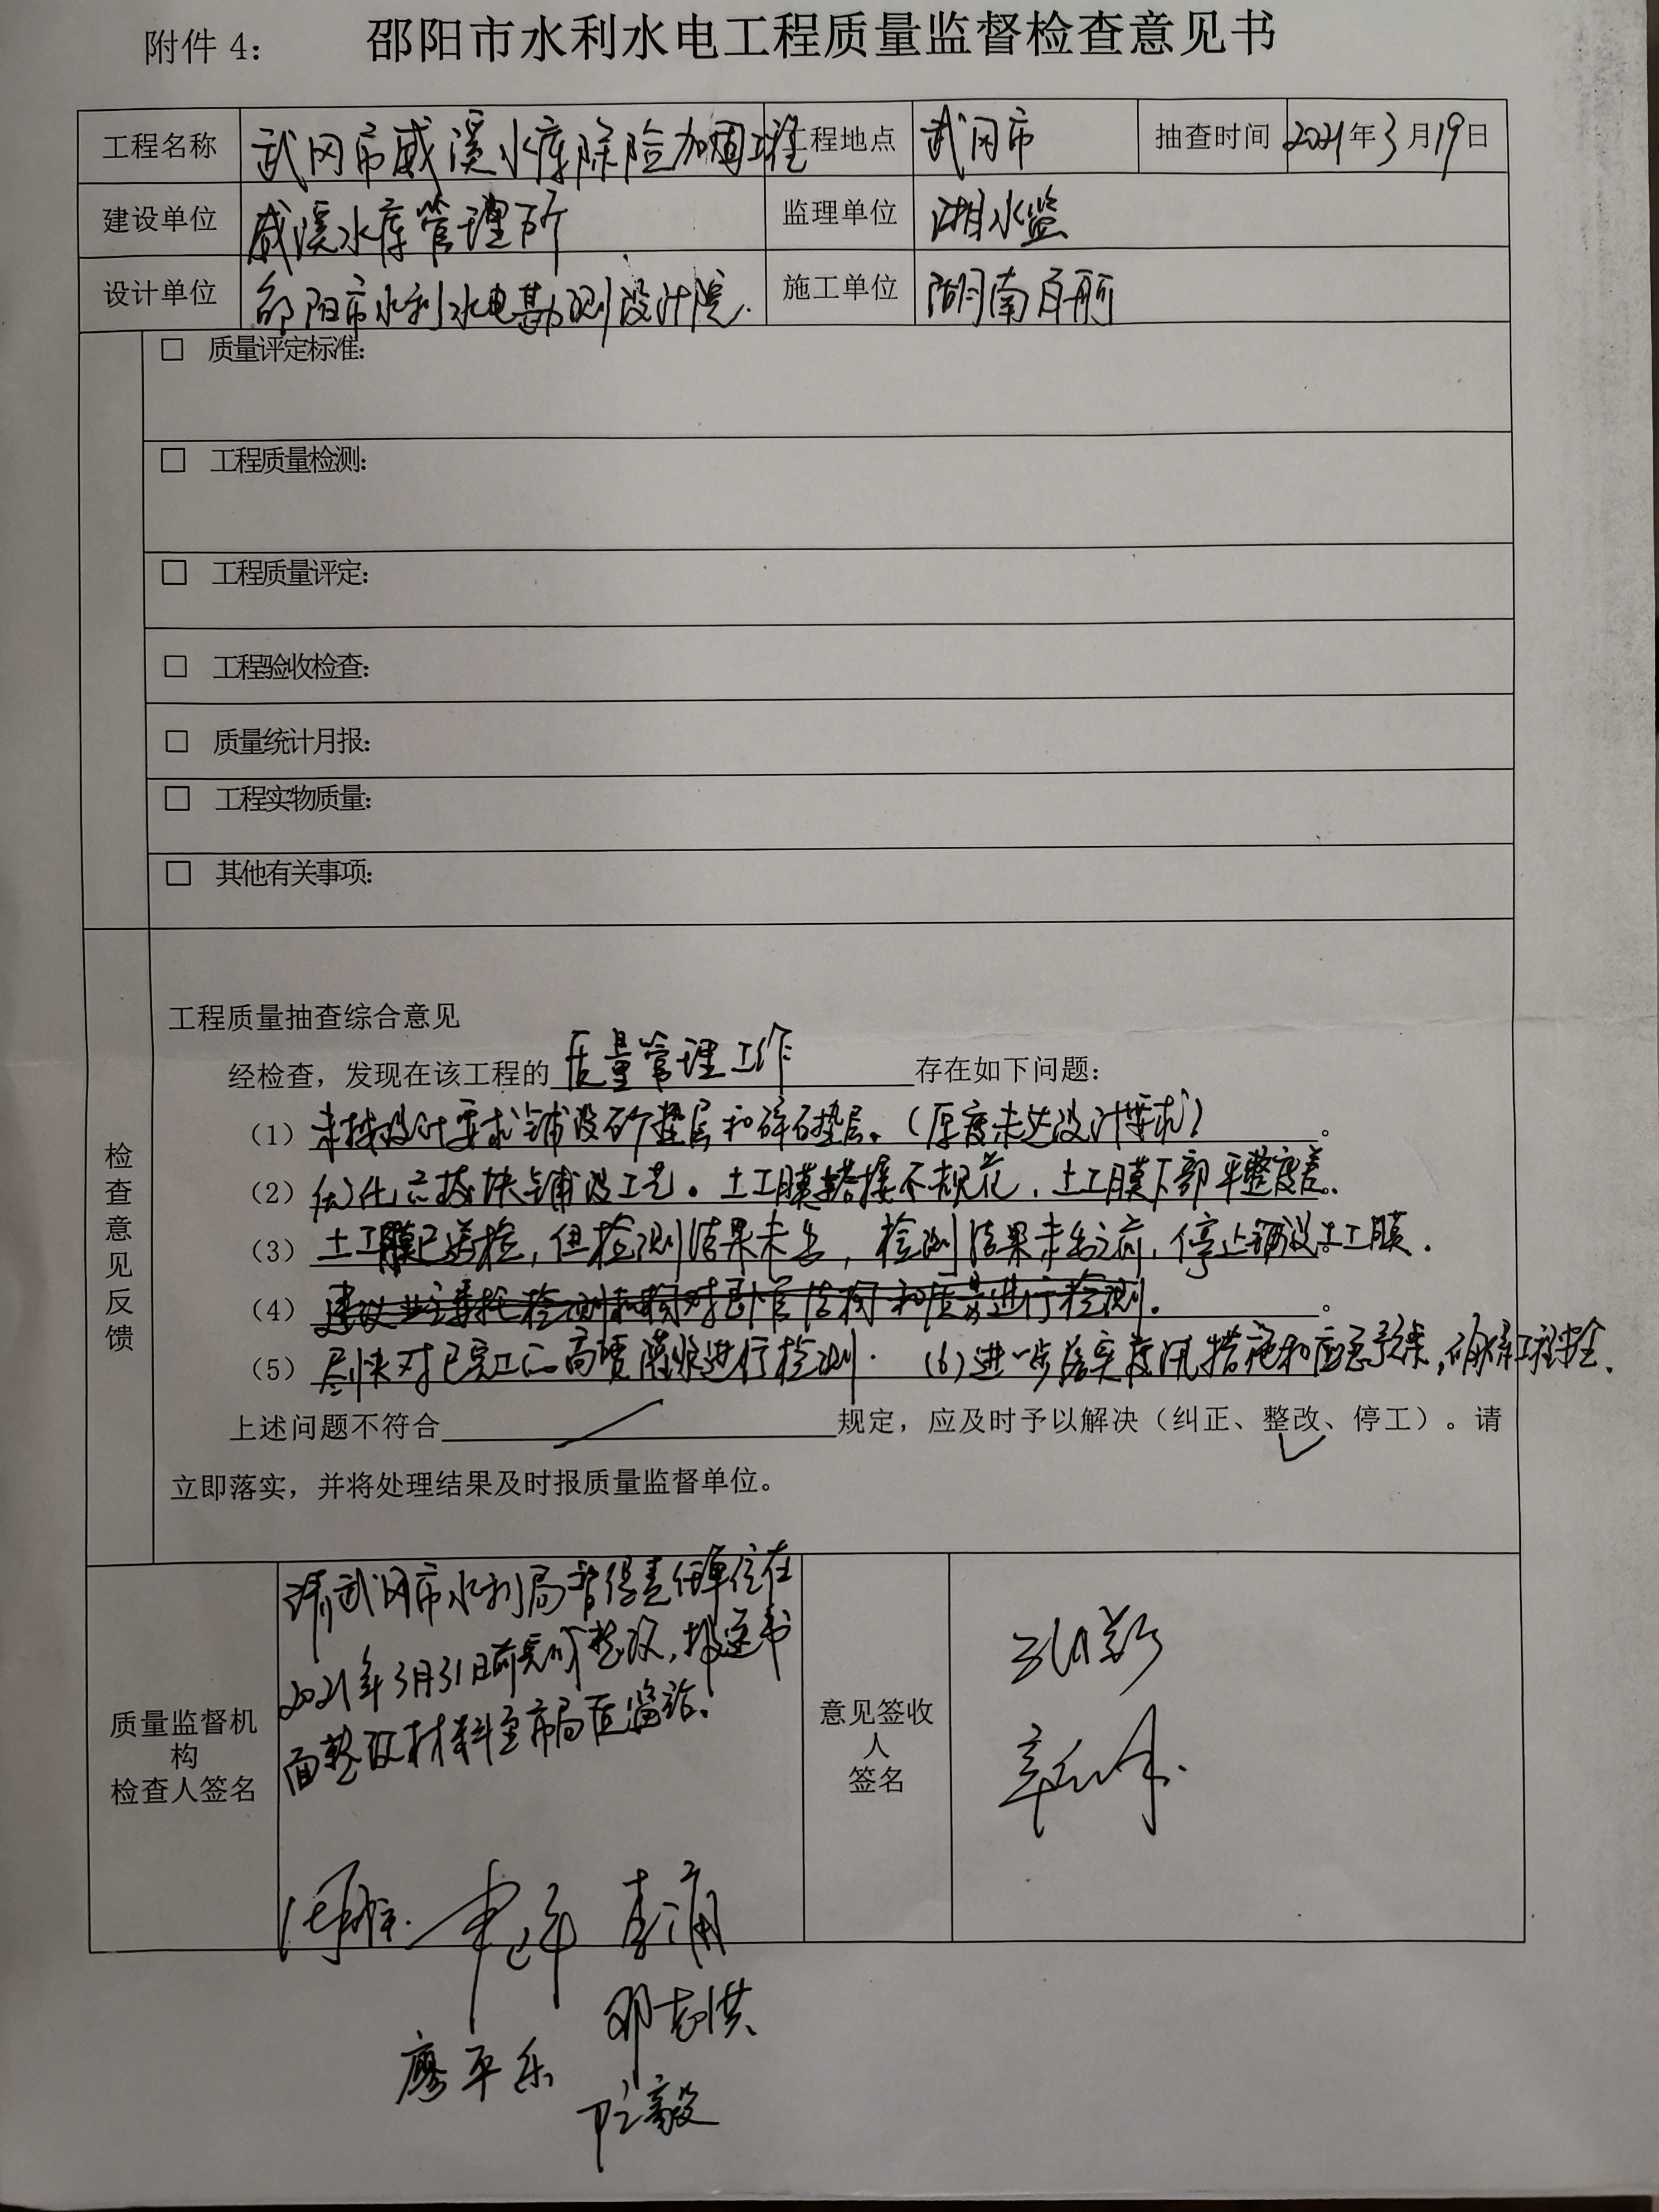 附件 4：
邵阳市水利水电工程质量监督检查意见书
工程名称 武冈市威溪水库除险加固工程 工程地点 武冈市 抽查时间 2021年3月19日
建设单位 威溪水库管理所 监理单位 湘水监
设计单位 邵阳市水利水电勘测设计院. 施工单位 湖南百舸
□ 质量评定标准：
□ 工程质量检测：
□ 工程质量评定：
□ 工程验收检查：
□ 质量统计月报：
□ 工程实物质量：
□ 其他有关事项：
检查意见反馈
工程质量抽查综合意见
经检查，发现在该工程的 质量管理工作 存在如下问题：
（1）未按设计要求铺设砂垫层和碎石垫层。（厚度未达设计要求）。
（2）优化 铺设工艺。土工膜搭接不规范，土工膜下部平整度差。
（3）土工膜已送检，但检测结果未出，检测结果未出之前，停止铺设土工膜.
（4）建议业主委托检测机构对卧管结构和质量进行检测.。
（5）尽快对已完工的高喷灌浆进行检测. （6）进一步落实度汛措施和应急预案，确保工程安全.
上述问题不符合 规定，应及时予以解决（纠正、整改、停工）。请
立即落实，并将处理结果及时报质量监督单位。
质量监督机
构
检查人签名
请武冈市水利局督促责任单位在
2021年3月31日前完成整改，报送书
面整改材料至市局质监站.
意见签收
人
签名
邓志洪
廖平乐
毅